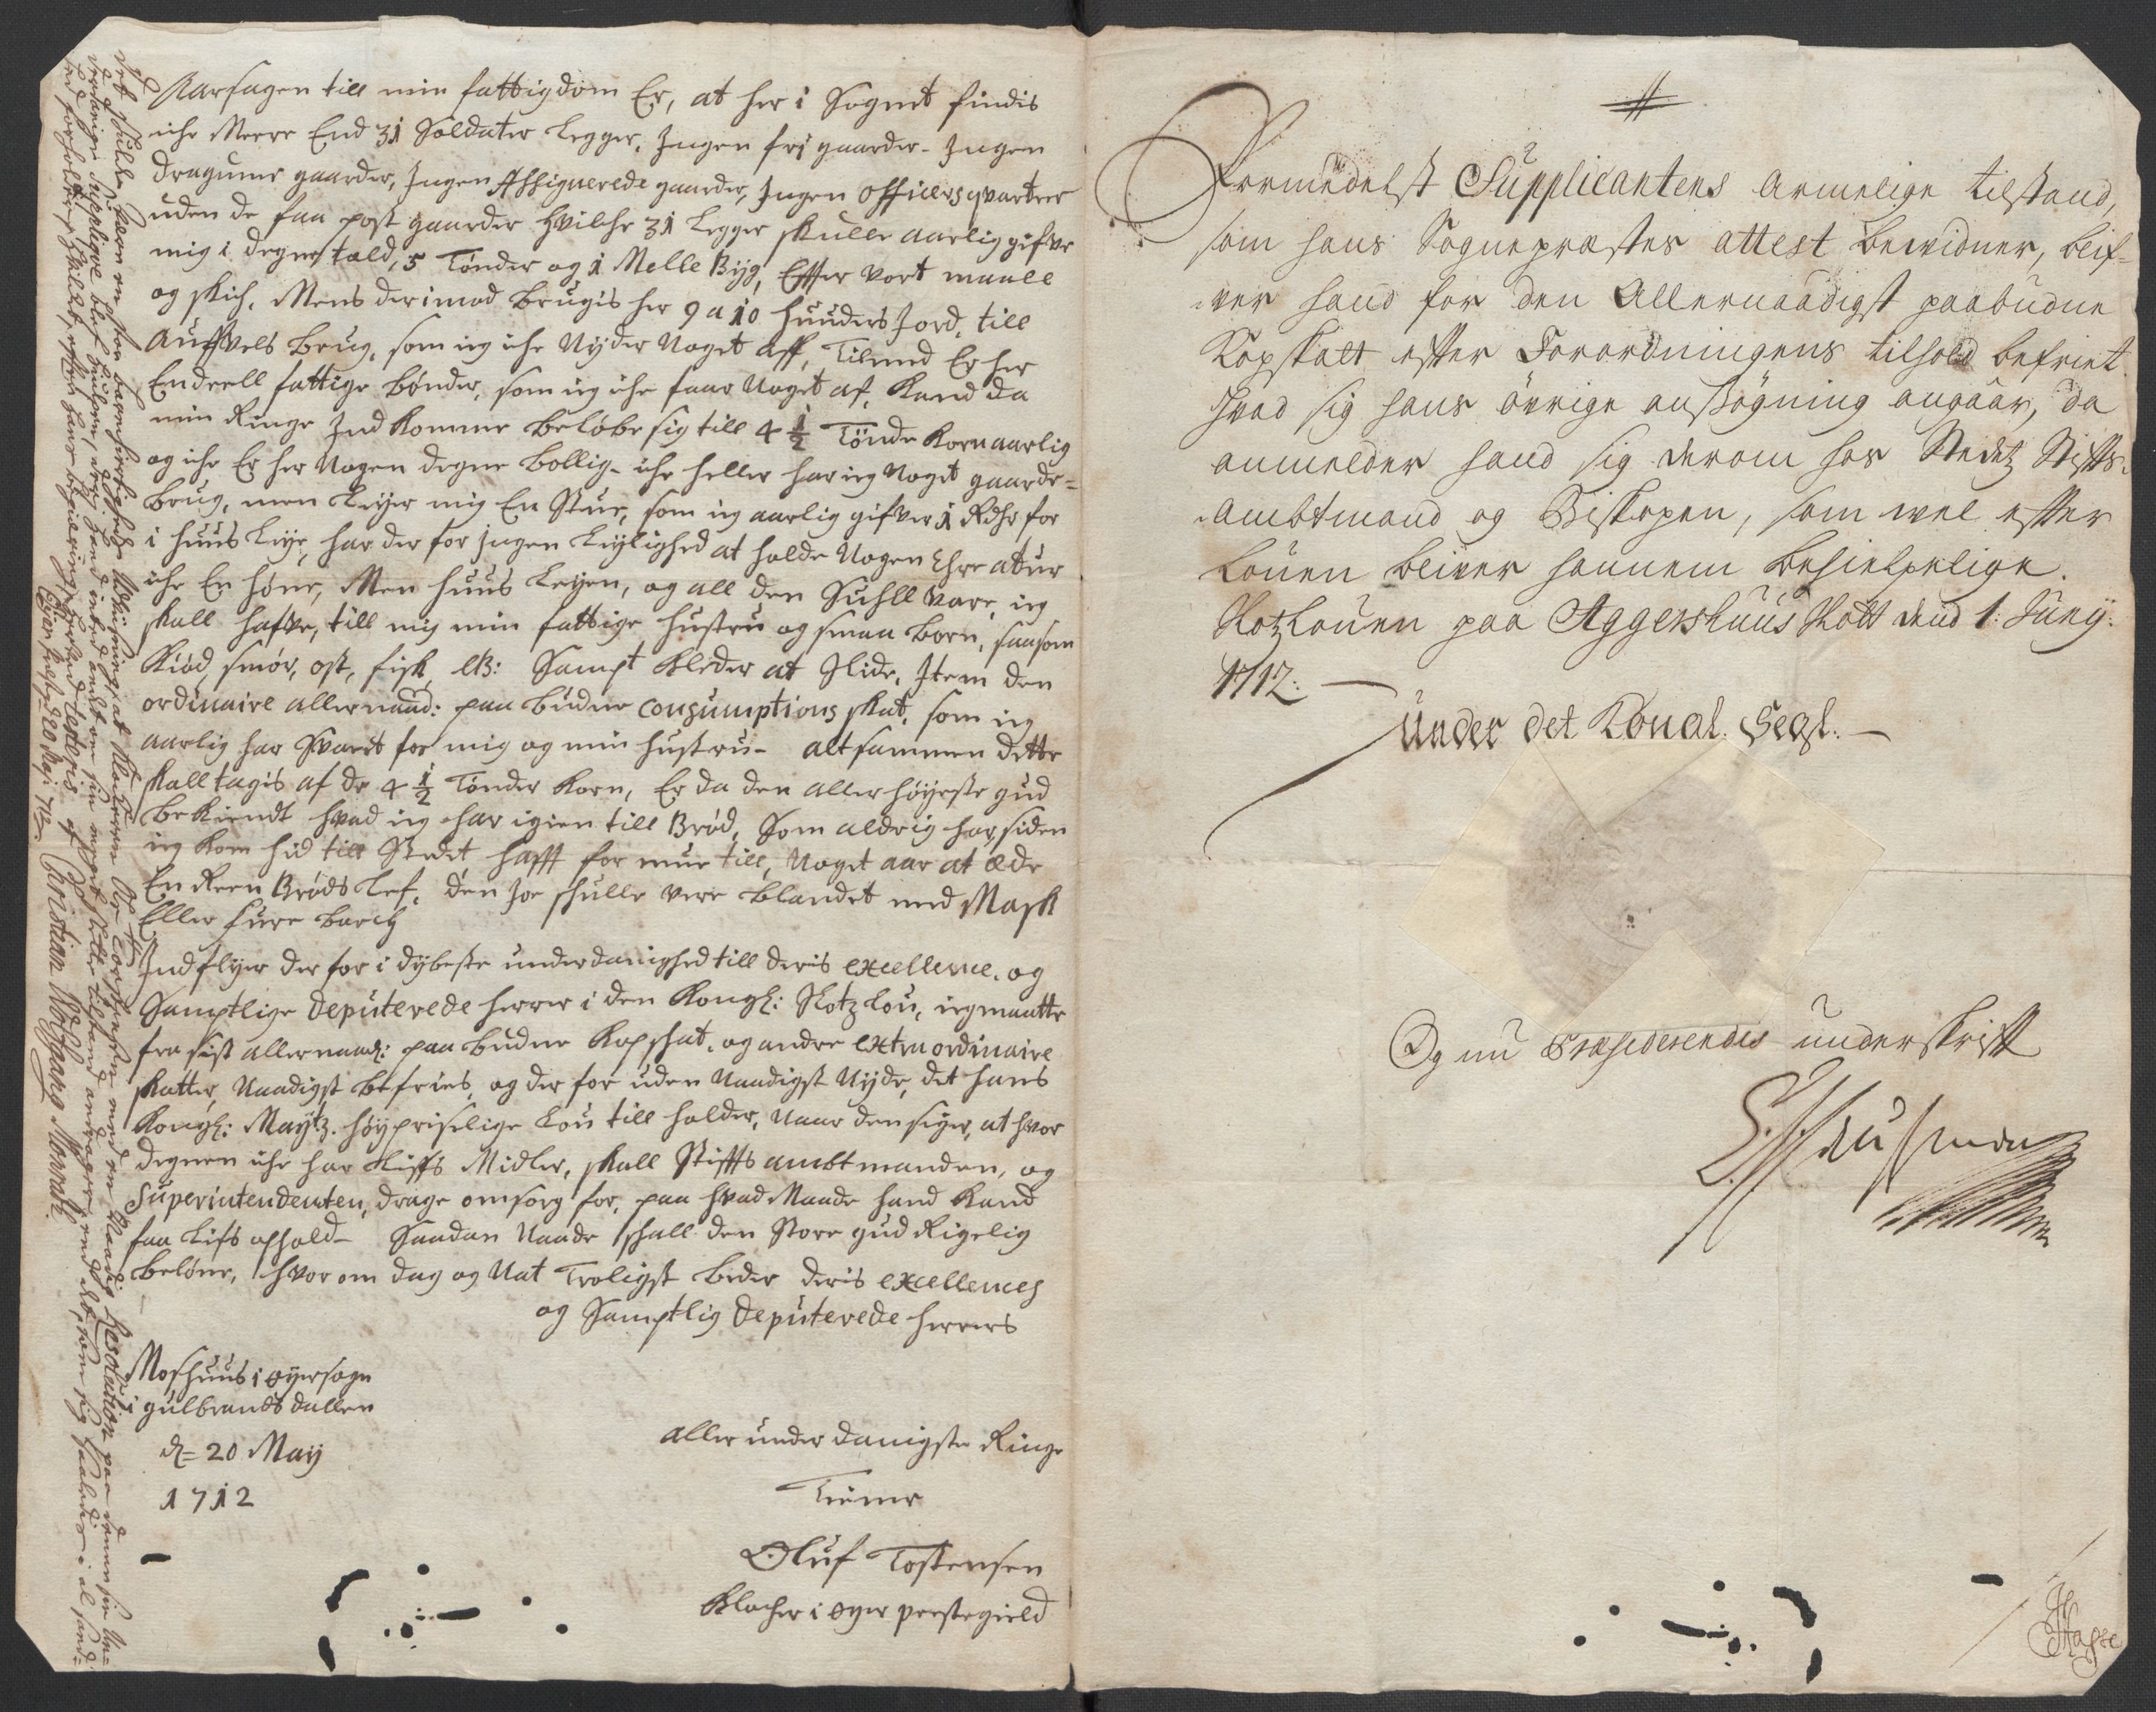 Aarsagen till min fattigdom Er, at her i Sognet findis
iche Meere End 31 Soldater Legger, Ingen frj gaarder - Ingen
dragunr gaarder, Ingen Assignerede gaarder, Ingen officers qvarterer
uden de faa post gaarder hvilche 31 Legger skulle aarlig gifve
mig i degnetold, 5 Tønder og 1 Melle Byg, Effter vort maall
og skich. Mens derimod brugis her 9 a 10 hunders Jord, till
Auffvels brug, som ieg iche Nyder Noget aff, Tilmed Er her
Endeell fattige bønder, som ieg iche faar Noget af, Kand da
min Ringe Ind Komme beløbe sig till 4 1/2 Tønde Korn aarlig
og iche Er her Nogen degne bollig - iche heller har ieg Noget gaarde=
brug, men Leyer mig En Stue, som ieg aarlig gifver 1 Rdhr for
i huus Leye, har der for Ingen Leylighed at holde Nogen Chreatur
iche En høne, Men huus Leyen, og all den Suhll vare, ieg
skall hafve, till mig min fattige hustru og smaa børn, saasom
Kiød, smør, ost, fisk, etc: Sampt Kleder at Slide, Item den
ordinaire allernaad: paa budne Consumptions skat, som ieg
aarlig har svaret for mig og min hustru - altsammen dette
skall tagis af de 4 1/2 Tønder Korn, Er da den allerhøyeste gud
bekiendt hvad ieg har igien till Brød, Som aldrig har, siden
ieg Kom hid till Stedet hafft formue till, Noget aar at æde
En Reen Brøds Lef, den Joe skulle vere blandet med Mask
Eller fure barch
Indflyer der for i dybeste underdanighed till deris excellence. og
Samptlige Deputerede herrer i den Kongl: Slotz Lou, ieg maatte
fra sist allernaad: paa budne Kopskat, og andre extraordinaire
skatter, Naadigst befries, og der for uden Naadigst Nyde, det hans
Kongl: Maytz. høypriselige Lou till holder, Naar den siger, at hvor
degnen iche har Lifs Midler, skall Stiffts ambtmanden, og
Superintendenten, drage omsorg for, paa hvad Maade hand Kand
faa Lifs ophold - Saadan Naade skall den Store gud Rigelig
beløne, hvor om dag og Nat Troligst beder deris excellences
og Samptlig Deputerede herrers
Moshuus i øyer sogn
i gulbrandsdallen
d= 20 May
1712
aller under danigste Ringe
Tiener
Oluf Tostensen
Klocher i øyer prestegield
Christian Wolfgang Monrath
Formedelst Supplicantens armelige tilstand,
som hans Sognepræstes attest bewidner, blif-
ver hand for den Allernaadigst paabudne
Kopskatt efter Forordningens tilhold befriet
Hvad sig hans øvrige ansøgning angaar, da
anmelder hand sig derom hos Stedetz Stiffts-
Ambtmand og Biskopen, som wel effter
Louen bliver hannem behielpelige.
Slotzlouen paa Aggershuus Slott dend 1: Juny:
1712: -
Under det Kongl. Segl. -
Og nu Præsiderendes underskrifft